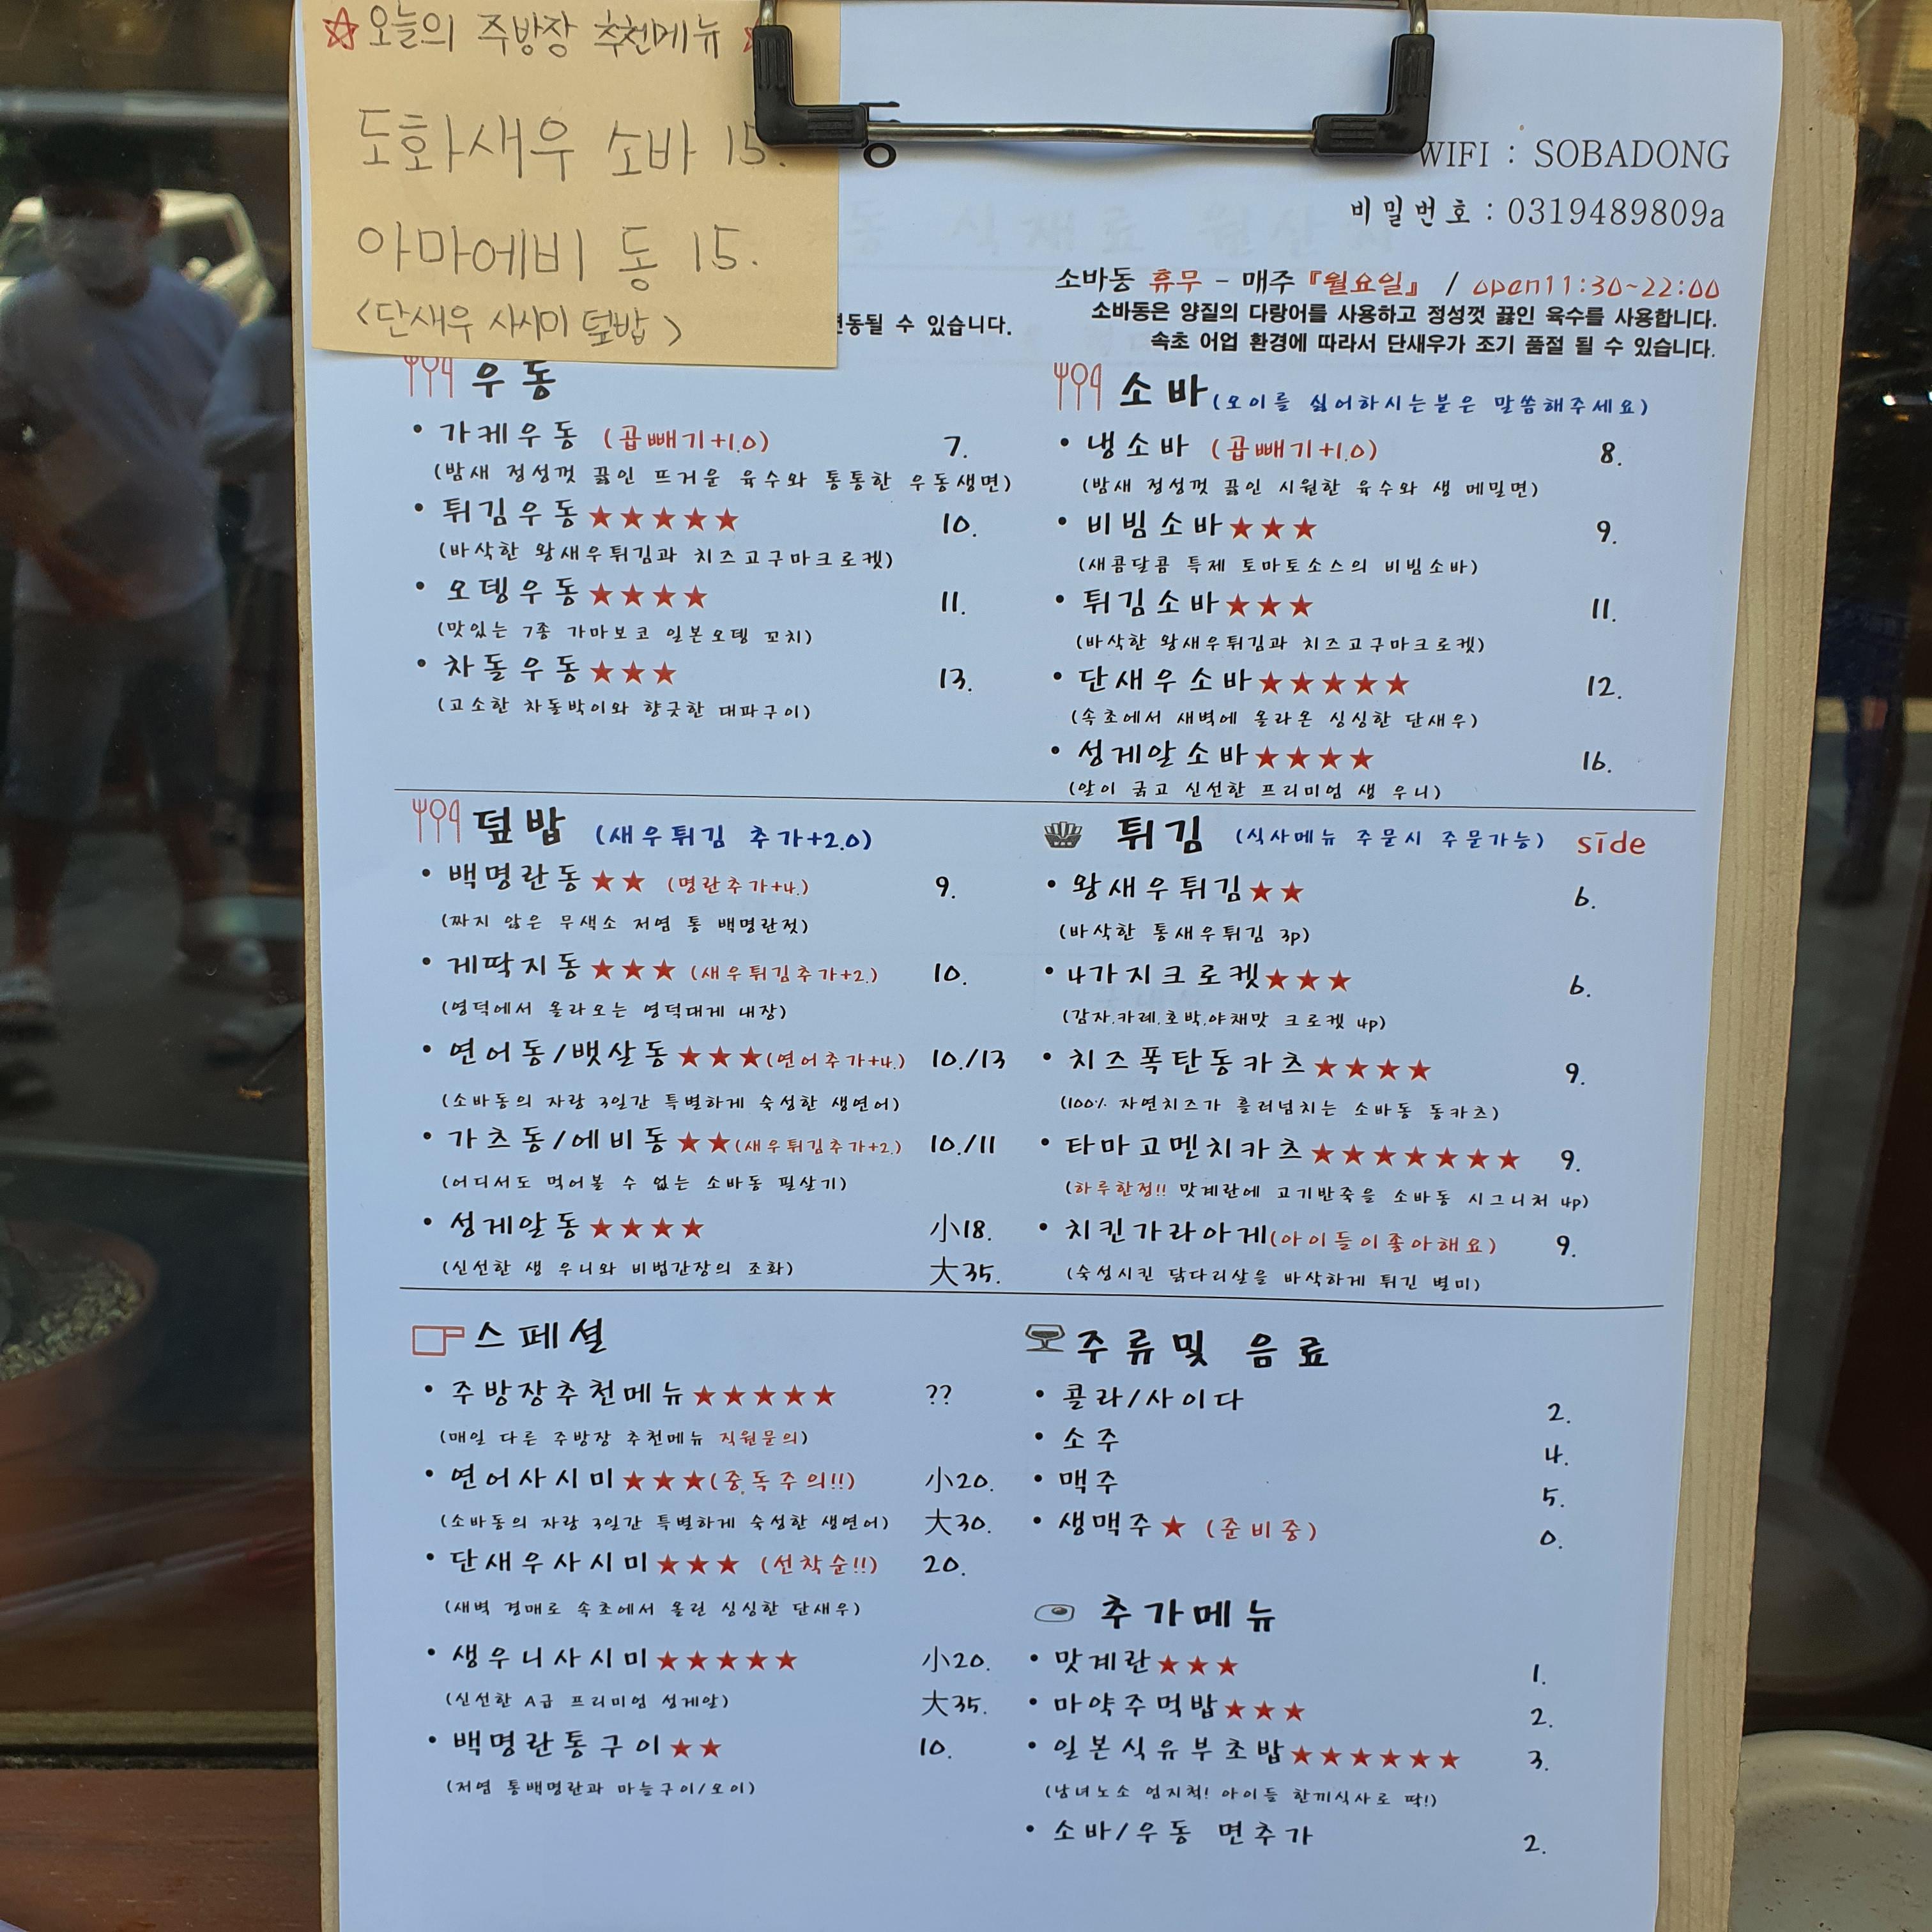 ☆오늘의 주방장 추천메뉴
도화새우 소바 15.
아마에비 동 15.
<단새우 사시미 덮밥>
WIFI : SOBADONG
비밀번호 : 0319489809a
소바동 휴무 - 매주『월요일』 / open11:30~22:00
소바동은 양질의 다랑어를 사용하고 정성껏 끓인 육수를 사용합니다.
변동될 수 있습니다.
속초 어업 환경에 따라서 단새우가 조기 품절 될 수 있습니다.
우동
• 가케우동 (곱빼기+1.0) 7.
(밤새 정성껏 끓인 뜨거운 육수와 통통한 우동생면)
• 튀김우동★★★★★ 10.
(바삭한 왕새우튀김과 치즈고구마크로켓)
• 오뎅우동★★★★ 11.
(맛있는 7종 가마보코 일본오뎅 꼬치)
• 차돌우동★★★ 13.
(고소한 차돌박이와 향긋한 대파구이)
소바(오이를 싫어하시는분은 말씀해주세요)
• 냉소바 (곱빼기+1.0) 8.
(밤새 정성껏 끓인 시원한 육수와 생 메밀면)
• 비빔소바★★★ 9.
(새콤달콤 특제 토마토소스의 비빔소바)
• 튀김소바★★★ 11.
(바삭한 왕새우튀김과 치즈고구마크로켓)
• 단새우소바★★★★★ 12.
(속초에서 새벽에 올라온 싱싱한 단새우)
• 성게알소바★★★★ 16.
(알이 굵고 신선한 프리미엄 생 우니)
덮밥 (새우튀김 추가+2.0)
• 백명란동★★ (명란추가+4.) 9.
(짜지 않은 무색소 저염 통 백명란젓)
• 게딱지동★★★ (새우튀김추가+2.) 10.
(영덕에서 올라오는 영덕대게 내장)
• 연어동/뱃살동★★★(연어추가+4.) 10./13
(소바동의 자랑 3일간 특별하게 숙성한 생연어)
• 가츠동/에비동★★(새우튀김추가+2.) 10./11
(어디서도 먹어볼 수 없는 소바동 필살기)
• 성게알동★★★★ 小18.
(신선한 생 우니와 비법간장의 조화) 大35.
튀김 (식사메뉴 주문시 주문가능) side
• 왕새우튀김★★ 6.
(바삭한 통새우튀김 3p)
• 4가지크로켓★★★ 6.
(감자.카레.호박.야채맛 크로켓 4p)
• 치즈폭탄동카츠★★★★ 9.
(100% 자연치즈가 흘러넘치는 소바동 동카츠)
• 타마고멘치카츠★★★★★★★ 9.
(하루한정!! 맛계란에 고기반죽을 소바동 시그니처 4p)
• 치킨가라아게(아이들이좋아해요) 9.
(숙성시킨 닭다리살을 바삭하게 튀긴 별미)
스페셜
• 주방장추천메뉴★★★★★ ??
(매일 다른 주방장 추천메뉴 직원문의)
• 연어사시미★★★(중독주의!!) 小20.
(소바동의 자랑 3일간 특별하게 숙성한 생연어) 大30.
• 단새우사시미★★★ (선착순!!) 20.
(새벽 경매로 속초에서 올린 싱싱한 단새우)
• 생우니사시미★★★★★ 小20.
(신선한 A급 프리미엄 성게알) 大35.
• 백명란통구이★★ 10.
(저염 통백명란과 마늘구이/오이)
주류및 음료
• 콜라/사이다 2.
• 소주 4.
• 맥주 5.
• 생맥주★ (준비중) 0.
추가메뉴
• 맛계란★★★ 1.
• 마약주먹밥★★★ 2.
• 일본식유부초밥★★★★★★ 3.
(남녀노소 엄지척! 아이들 한끼식사로 딱!)
• 소바/우동 면추가 2.